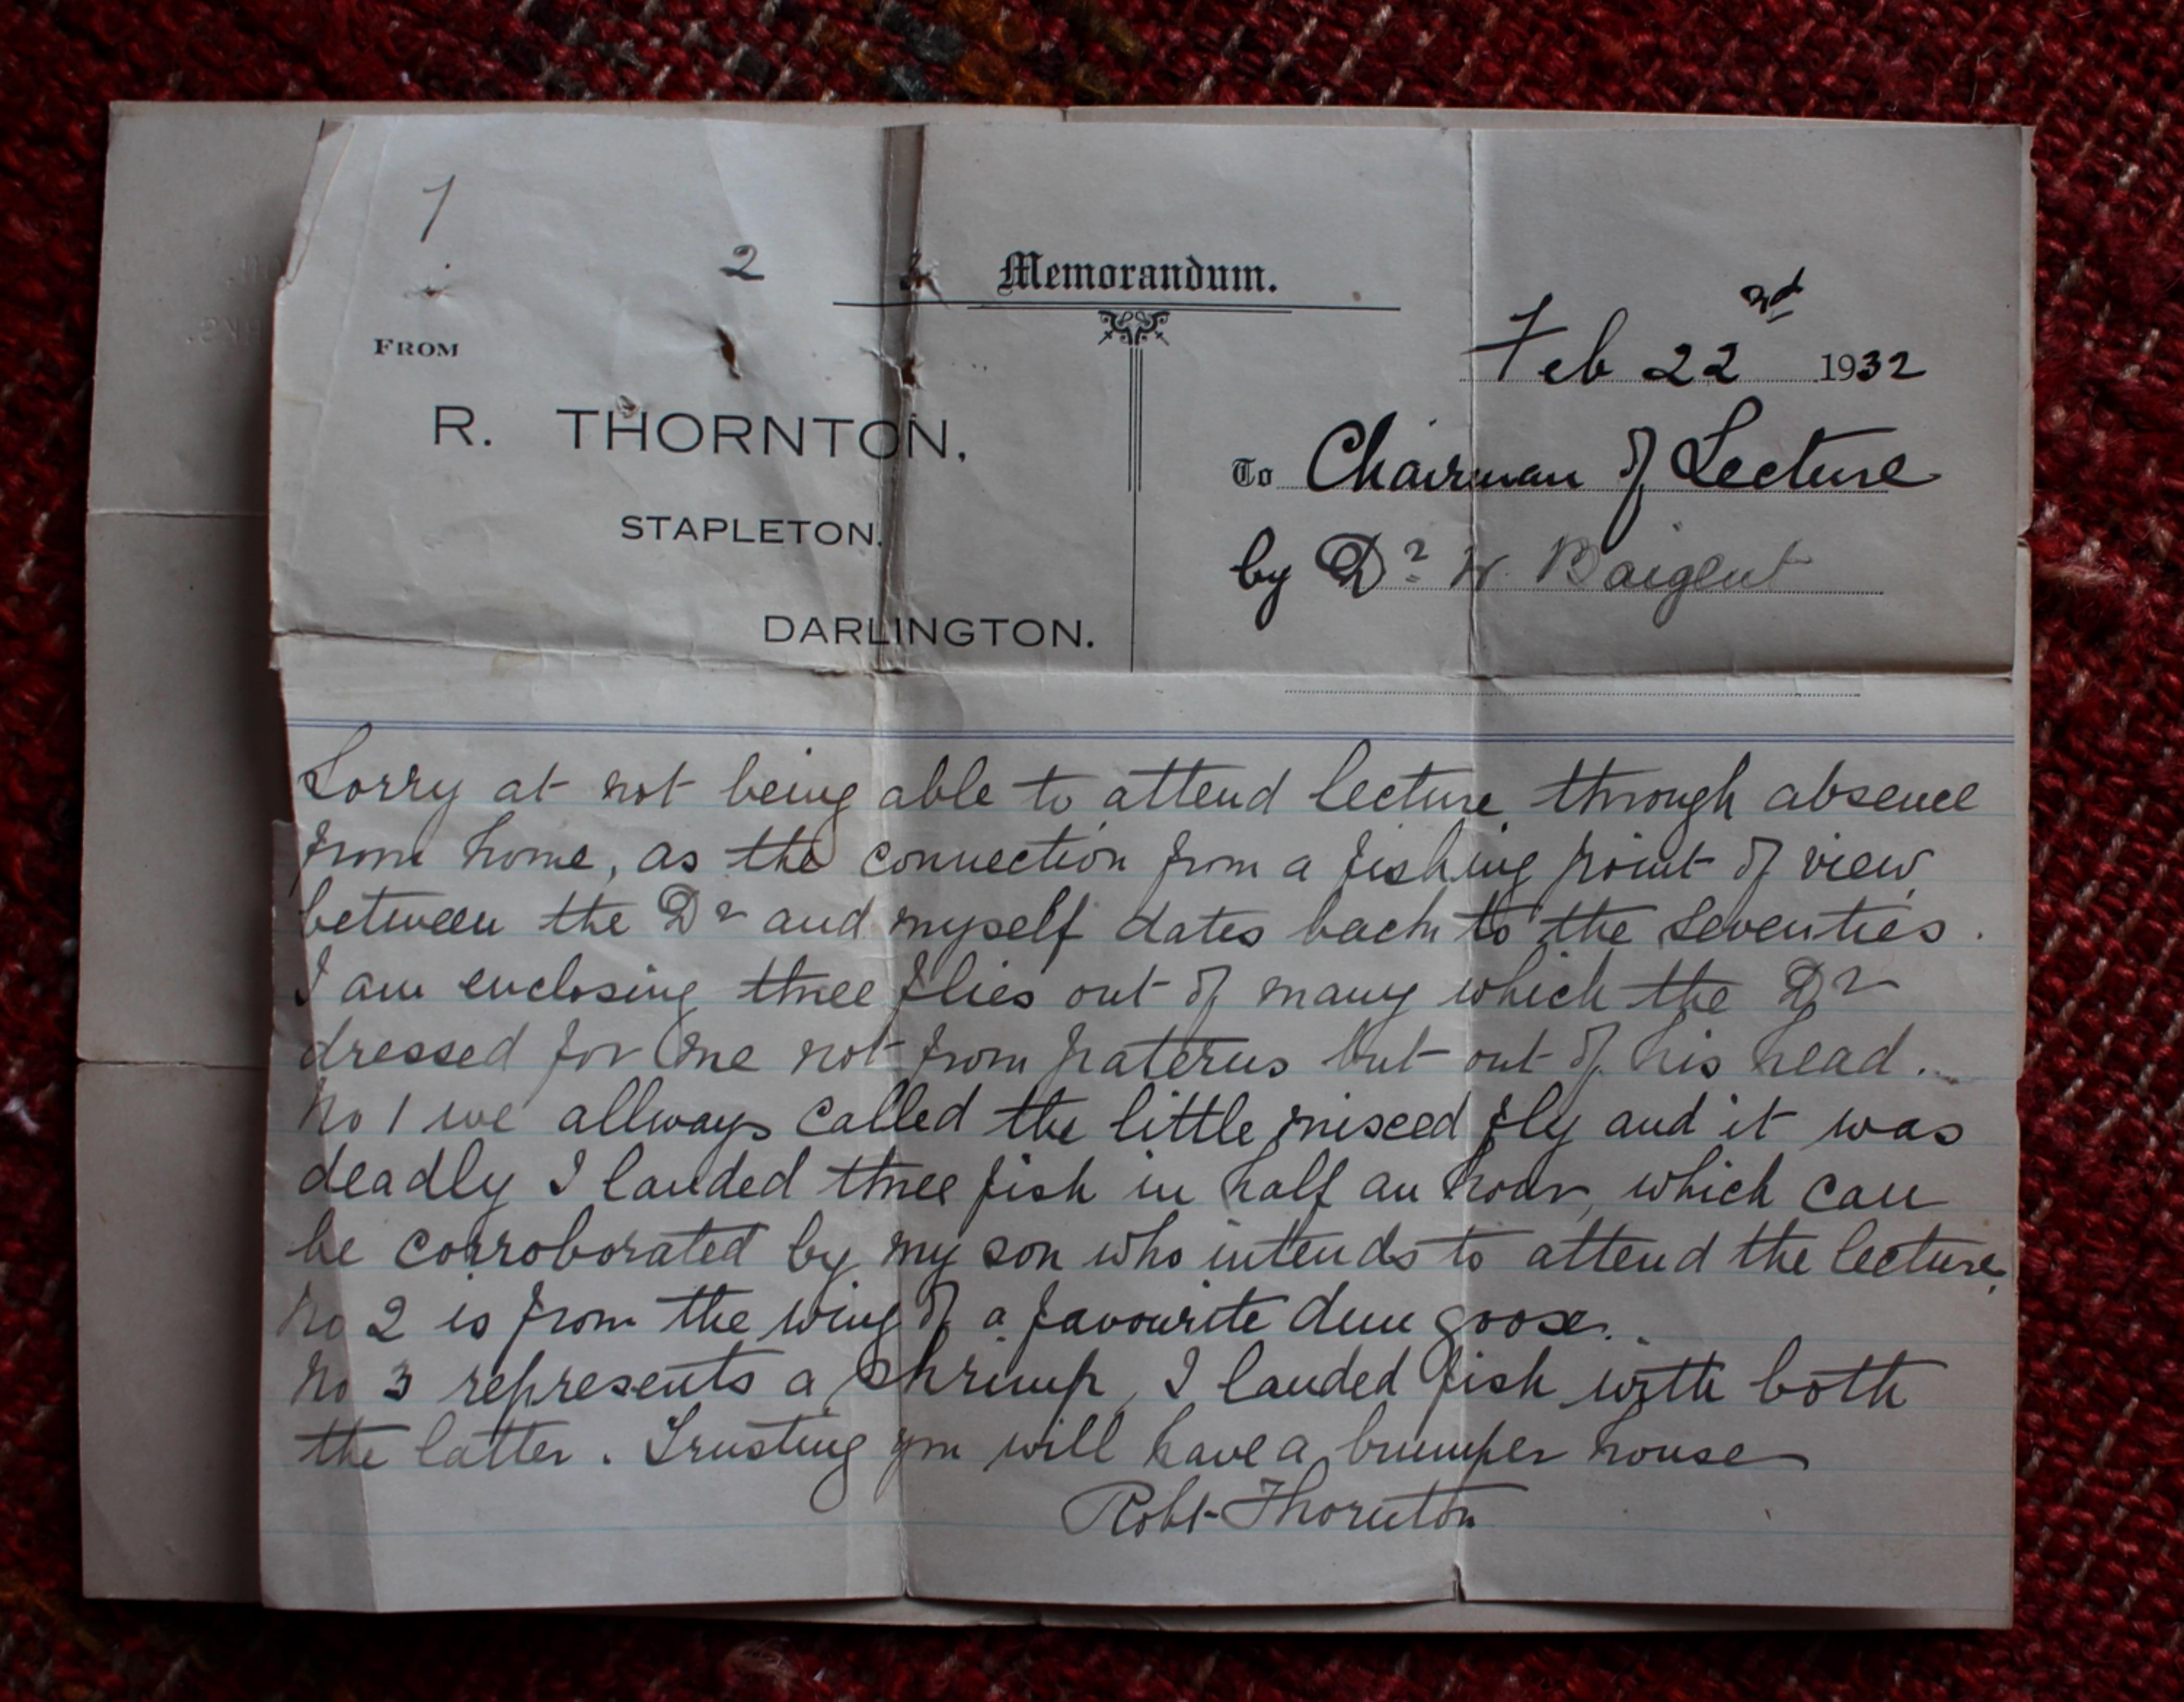 1
2
3
Memorandum.
FROM
Feb 22nd 1932
R. THORNTON,
To Chairman of Lecture
STAPLETON.
by Dr W. Baigent
DARLINGTON.
Sorry at not being able to attend lecture through absence
from home, as the connection from a fishing point of view
between the Dr and myself dates back to the seventies.
I am enclosing three flies out of many which the Dr
dressed for me not from paterns but out of his head.
No 1 we allways called the little miseed fly and it was
deadly I landed three fish in half an hour, which can
be corroborated by my son who intends to attend the lecture.
No 2 is from the wing of a favourite dun goose.
No 3 represents a shrimp, I landed fish with both
the latter. Trusting you will have a bumper house
Robt Thornton